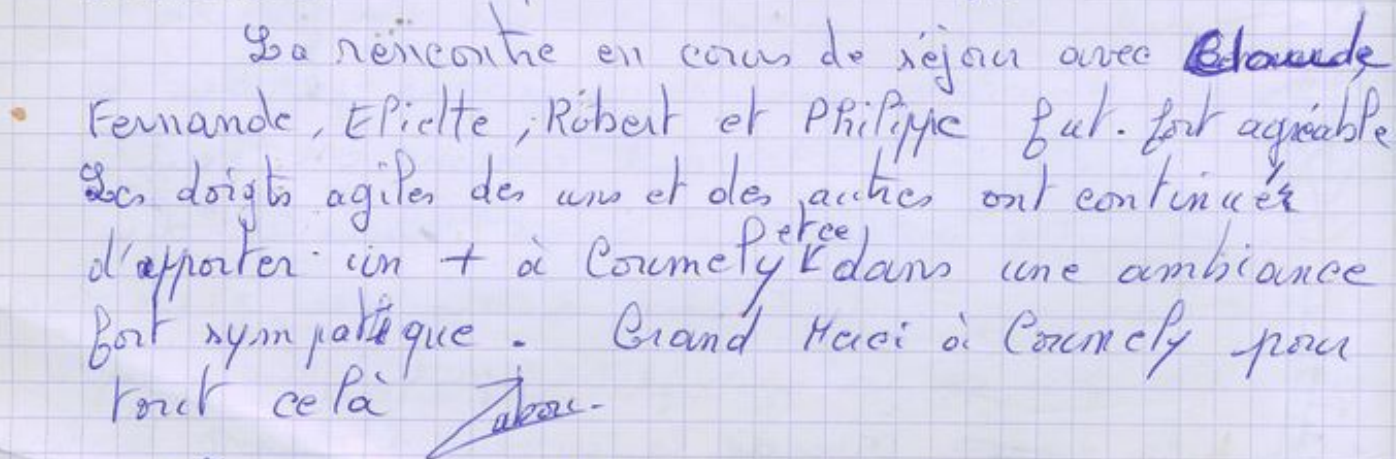 La rencontre en cours de séjour avec Claude,
Fernande, Eliette, Robert et Philippe fut. fort agréable
Les doigts agiles des uns et des autres ont continués
d'apporter un + à Coumely dans une ambiance
fort sympatique. Grand Merci à Coumely pour
tout celà